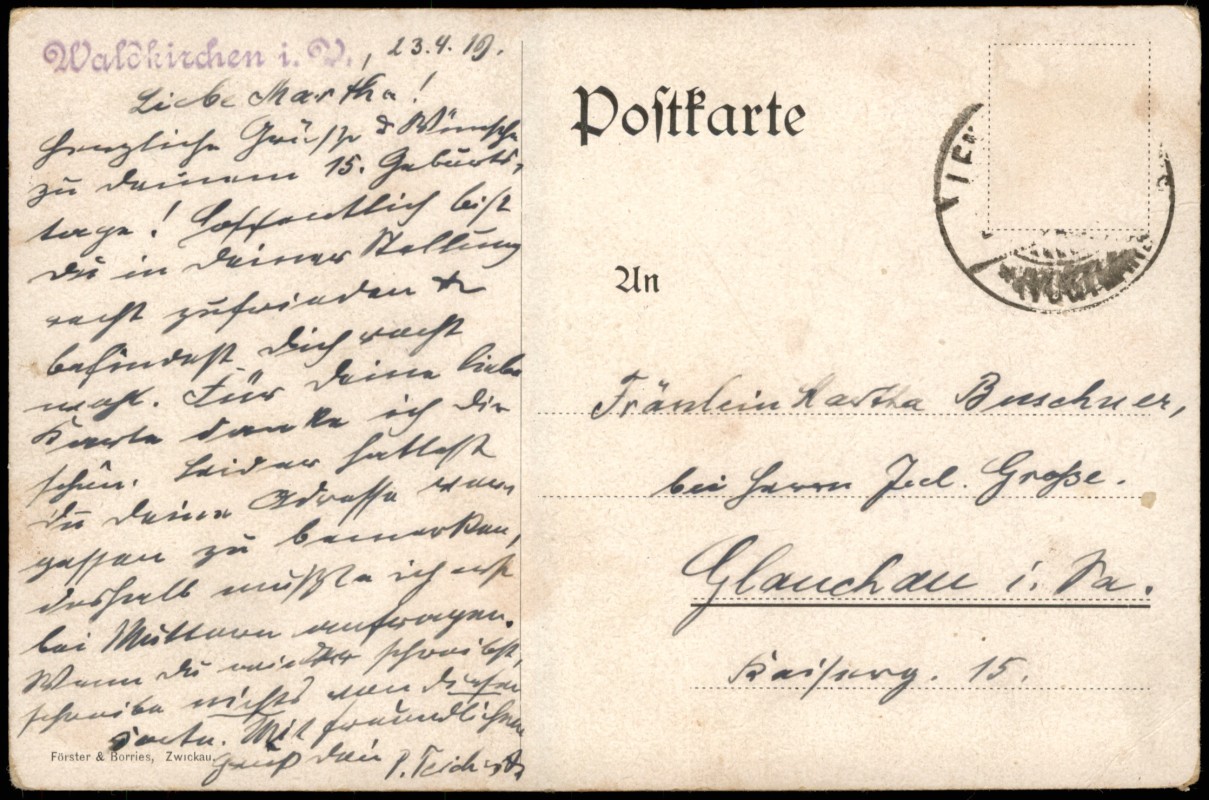 Waldkirchen i. V., 23.4.19.
Liebe Martha!
Herzliche Grüsse & Wünsche
zu deinem 15. Geburts-
tage! Hoffentlich bist
du in deiner Stellung
recht zufrieden &
befindest dich recht
wohl. Für deine liebe
Karte danke ich dir
schön. Leider hattest
du deine Adresse ver-
gessen zu bemerken,
deshalb mußte ich erst
bei Muttern anfragen.
Wenn du wieder schreibst,
schreibe nichts von dieser
Karte. Mit freundlichem
Gruß dein P.
Förster & Borries, Zwickau.
Postkarte
An
Fräulein Martha Buschner,
bei Herrn Jul. Große.
Glauchau i. Sa.
Kaiserg. 15.